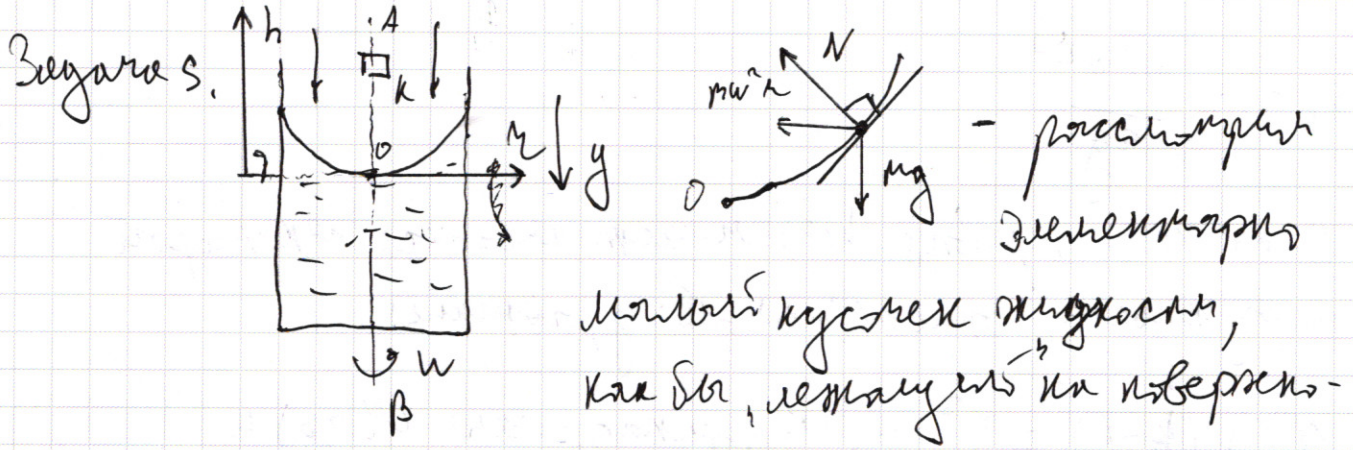 Задача 5.
h
A
K
O
r
y
ω
B
N
mω²r
mg
O
- рассмотрим
элементарно
малый кусочек жидкости,
как бы "лежащий" на поверхно-